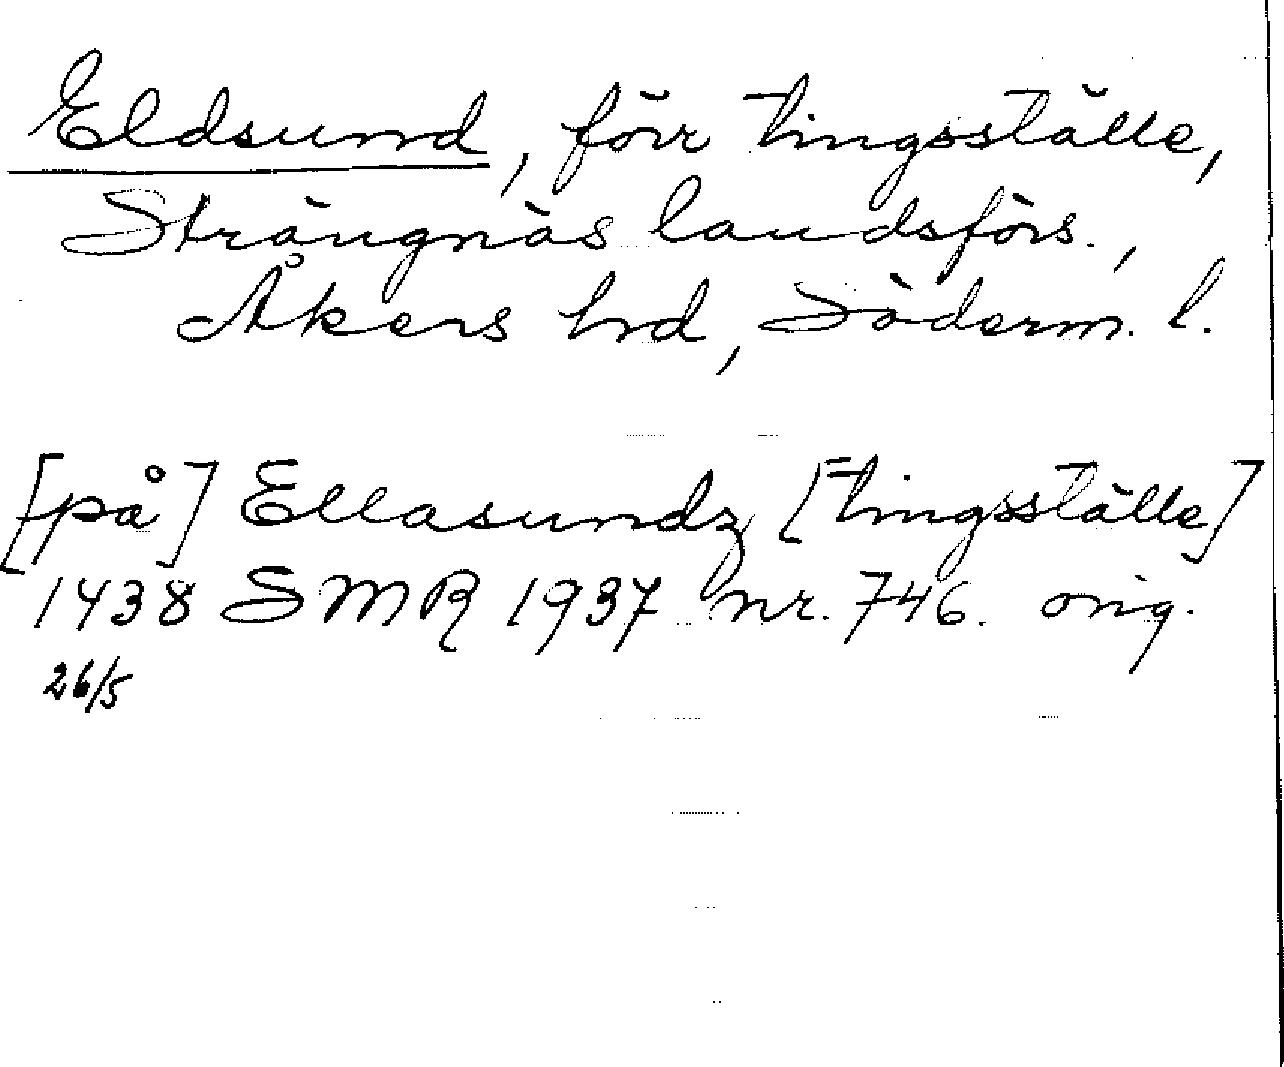 Eldsund, förr tingsställe,
Strängnäs landsförs.,
Åkers hd, Söderm. l.
[på] Ellasundz [tingsställe]
1438 SMR 1937 nr. 746. orig.
26/5